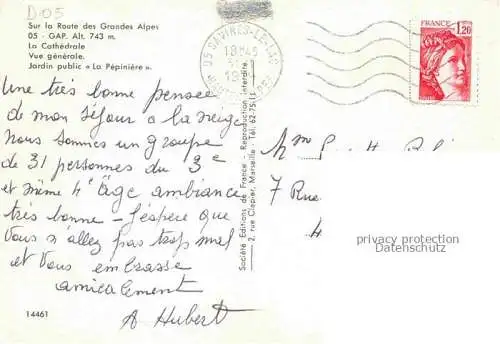 D05
Sur la Route des Grandes Alpes
05 - GAP. Alt. 743 m.
La Cathédrale
Vue générale.
Jardin public « La Pépinière ».
05 SAVINES-LE-LAC
18H45
FRANCE 1,20
Une très bonne pensée
de mon séjour à la neige
nous sommes un groupe
de 31 personnes du 3e
et même 4e âge ambiance
très bonne - J'espère que
Vous n'allez pas trop mal
et Vous embrasse
amicalement
A Hubert
14461
Société Editions de France - Reproduction interdite.
2, rue Clapier, Marseille - Tél. 62-75
Mme
7 Rue
privacy protection
Datenschutz